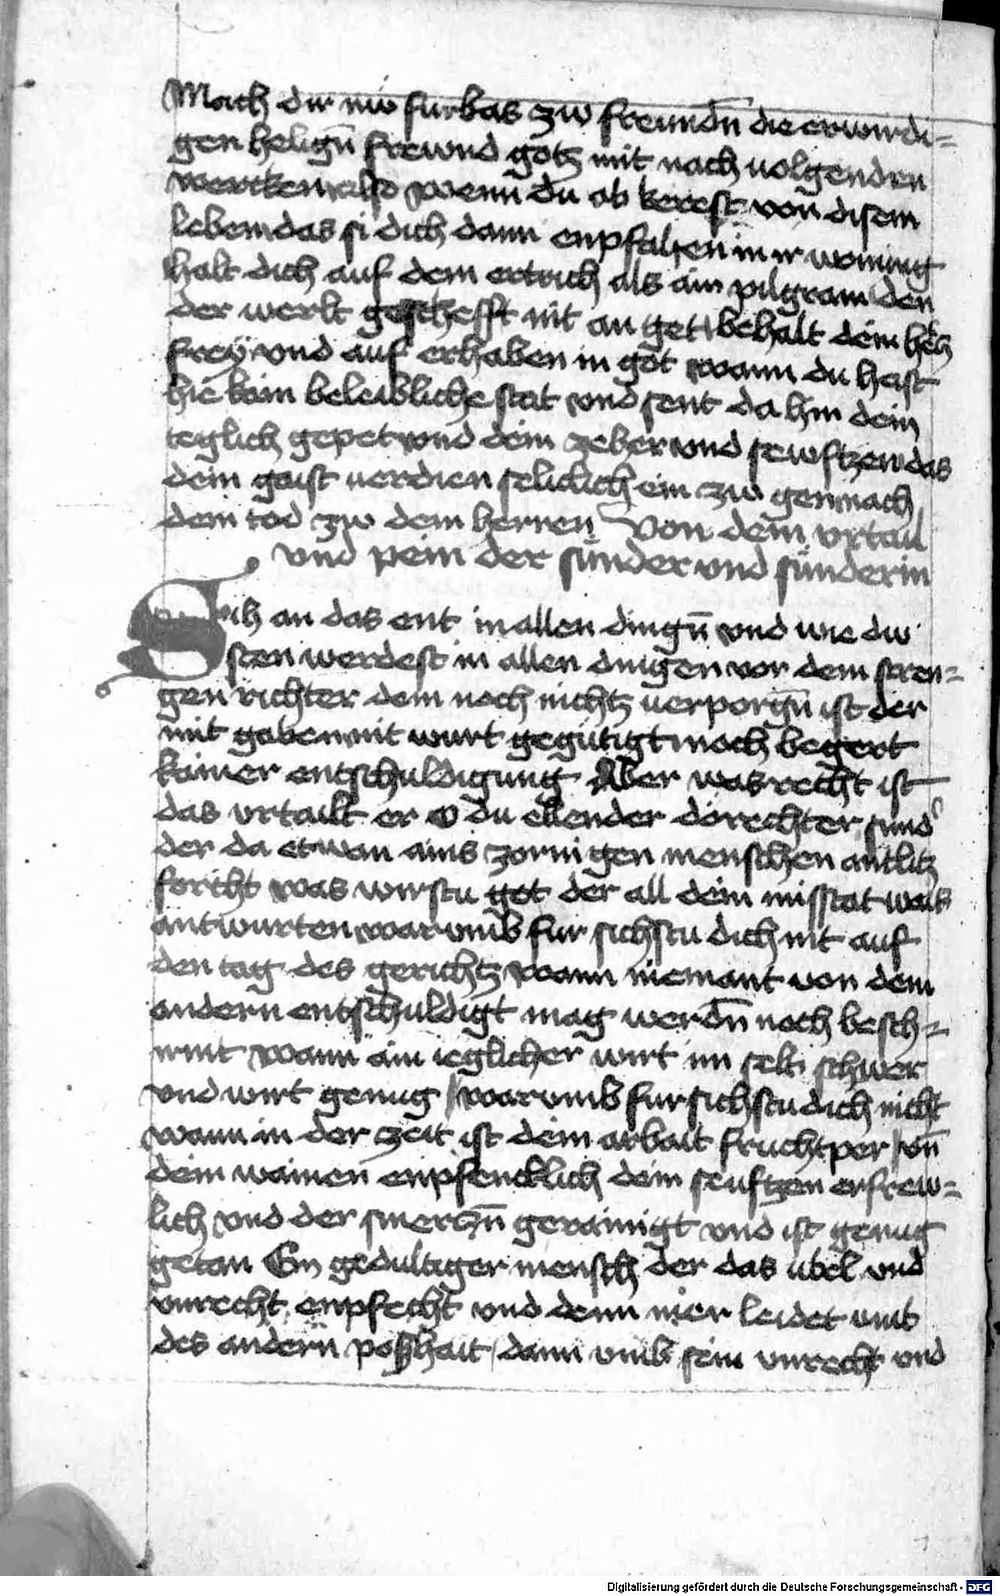 Mach dir nw furbas zw freundn̄ die erwirdi=
gen helign̄ frewnd gotz mit nach uolgenden
wercken also wenn du ab kerest von disem
leben das si dich dann enpfahen in ir wonung
halt dich auf dem ertrich als ain pilgram den
der werlt geschefft nit an get behalt dein hertz
frey vnd auf erhaben in got wann du hast
hie kain beleibliche stat vnd sent da hin dein
teglich gepet vnd dein zeher vnd sewftzen das
dein gaist uerdien seliclich ein zw gen nach
dem tod zw dem herren Von dem vrtail
vnd pein der sünder vnd sünderin
Sich an das ent in allen dingn̄ vnd wie dw
sten werdest in allen dingen vor dem stren=
gen richter dem noch nichtz uerporgn̄ ist der
mit gaben nit wurt gegütigt noch begert
kainer entschuldigung Aber was recht ist
das vrtailt er o du ellender dorechter sund
der da etwan ains zornigen menschen antlitz
forcht was wirstu got der all dein misstat wais
antwurten warumb fur sichstu dich nit auf
den tag des gerichtz wann niemant von dem
andern entschuldigt mag werdn̄ noch besch=
irmt wann ain ieglicher wirt im selb schwer
vnd wirt genug warumb fur sichstu dich nicht
wann in der zeit ist dein arbait fruchtper vn̄
dein wainen enpfencklich dein seuftzen erfrew=
lich vnd der smerczn̄ gerainigt vnd ist genug
getan Ein gedultiger mensch der das ubel vnd
vnrecht enpfecht vnd denn mer leidet umb
des andern posshait dann umb sein vnrecht vnd
Digitalisierung gefördert durch die Deutsche Forschungsgemeinschaft - DFG